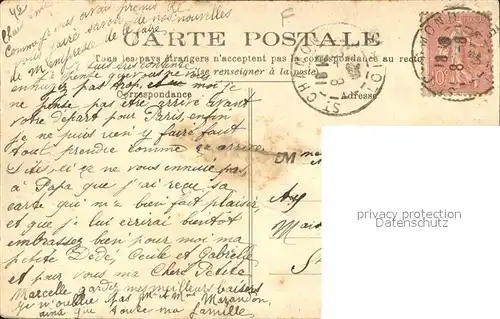 Chère amie
Comme je vous avais promis de
vous faire savoir de nos nouvelles
je m'empresse de le faire
F
CARTE POSTALE
Tous les pays étrangers n'acceptent pas la correspondance au recto
(Se renseigner à la poste)
Correspondance
Adresse
je pense que vous ne vous
ennuyez pas trop, et moi je ne
pense pas être arrivé avant
votre départ pour Paris, enfin
je ne puis rien y faire faut
tout prendre comme ça arrive
Dites, si ça ne vous ennuie pas,
à Papa que j'ai reçu sa
carte qui m'a bien fait plaisir,
et que je lui écrirai bientôt
embrassez bien pour moi ma
petite Dédé, Cécile et Gabrielle
et pour vous ma Chère Petite
Marcelle gardez mes meilleurs baisers
je n'oublie pas Mr et Mme Marandon,
ainsi que toute ma famille
M
privacy protection
watermark